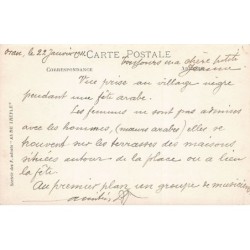 Oran, le 22 Janvier
CARTE POSTALE
toujours ma chère petite
CORRESPONDANCE
Jeanne
Vue prise au village nègre
pendant une fête arabe.
Les femmes ne sont pas admises
avec les hommes, (mœurs arabes) elles se
trouvent sur les terrasses des maisons
situées autour de la place où a lieu
la fête.
Au premier plan un groupe de musiciens